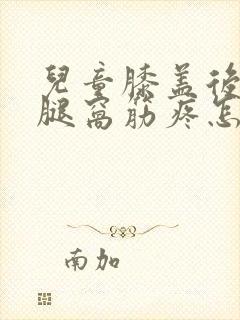 兒童膝盖後
腿窩筋疼怎
南加